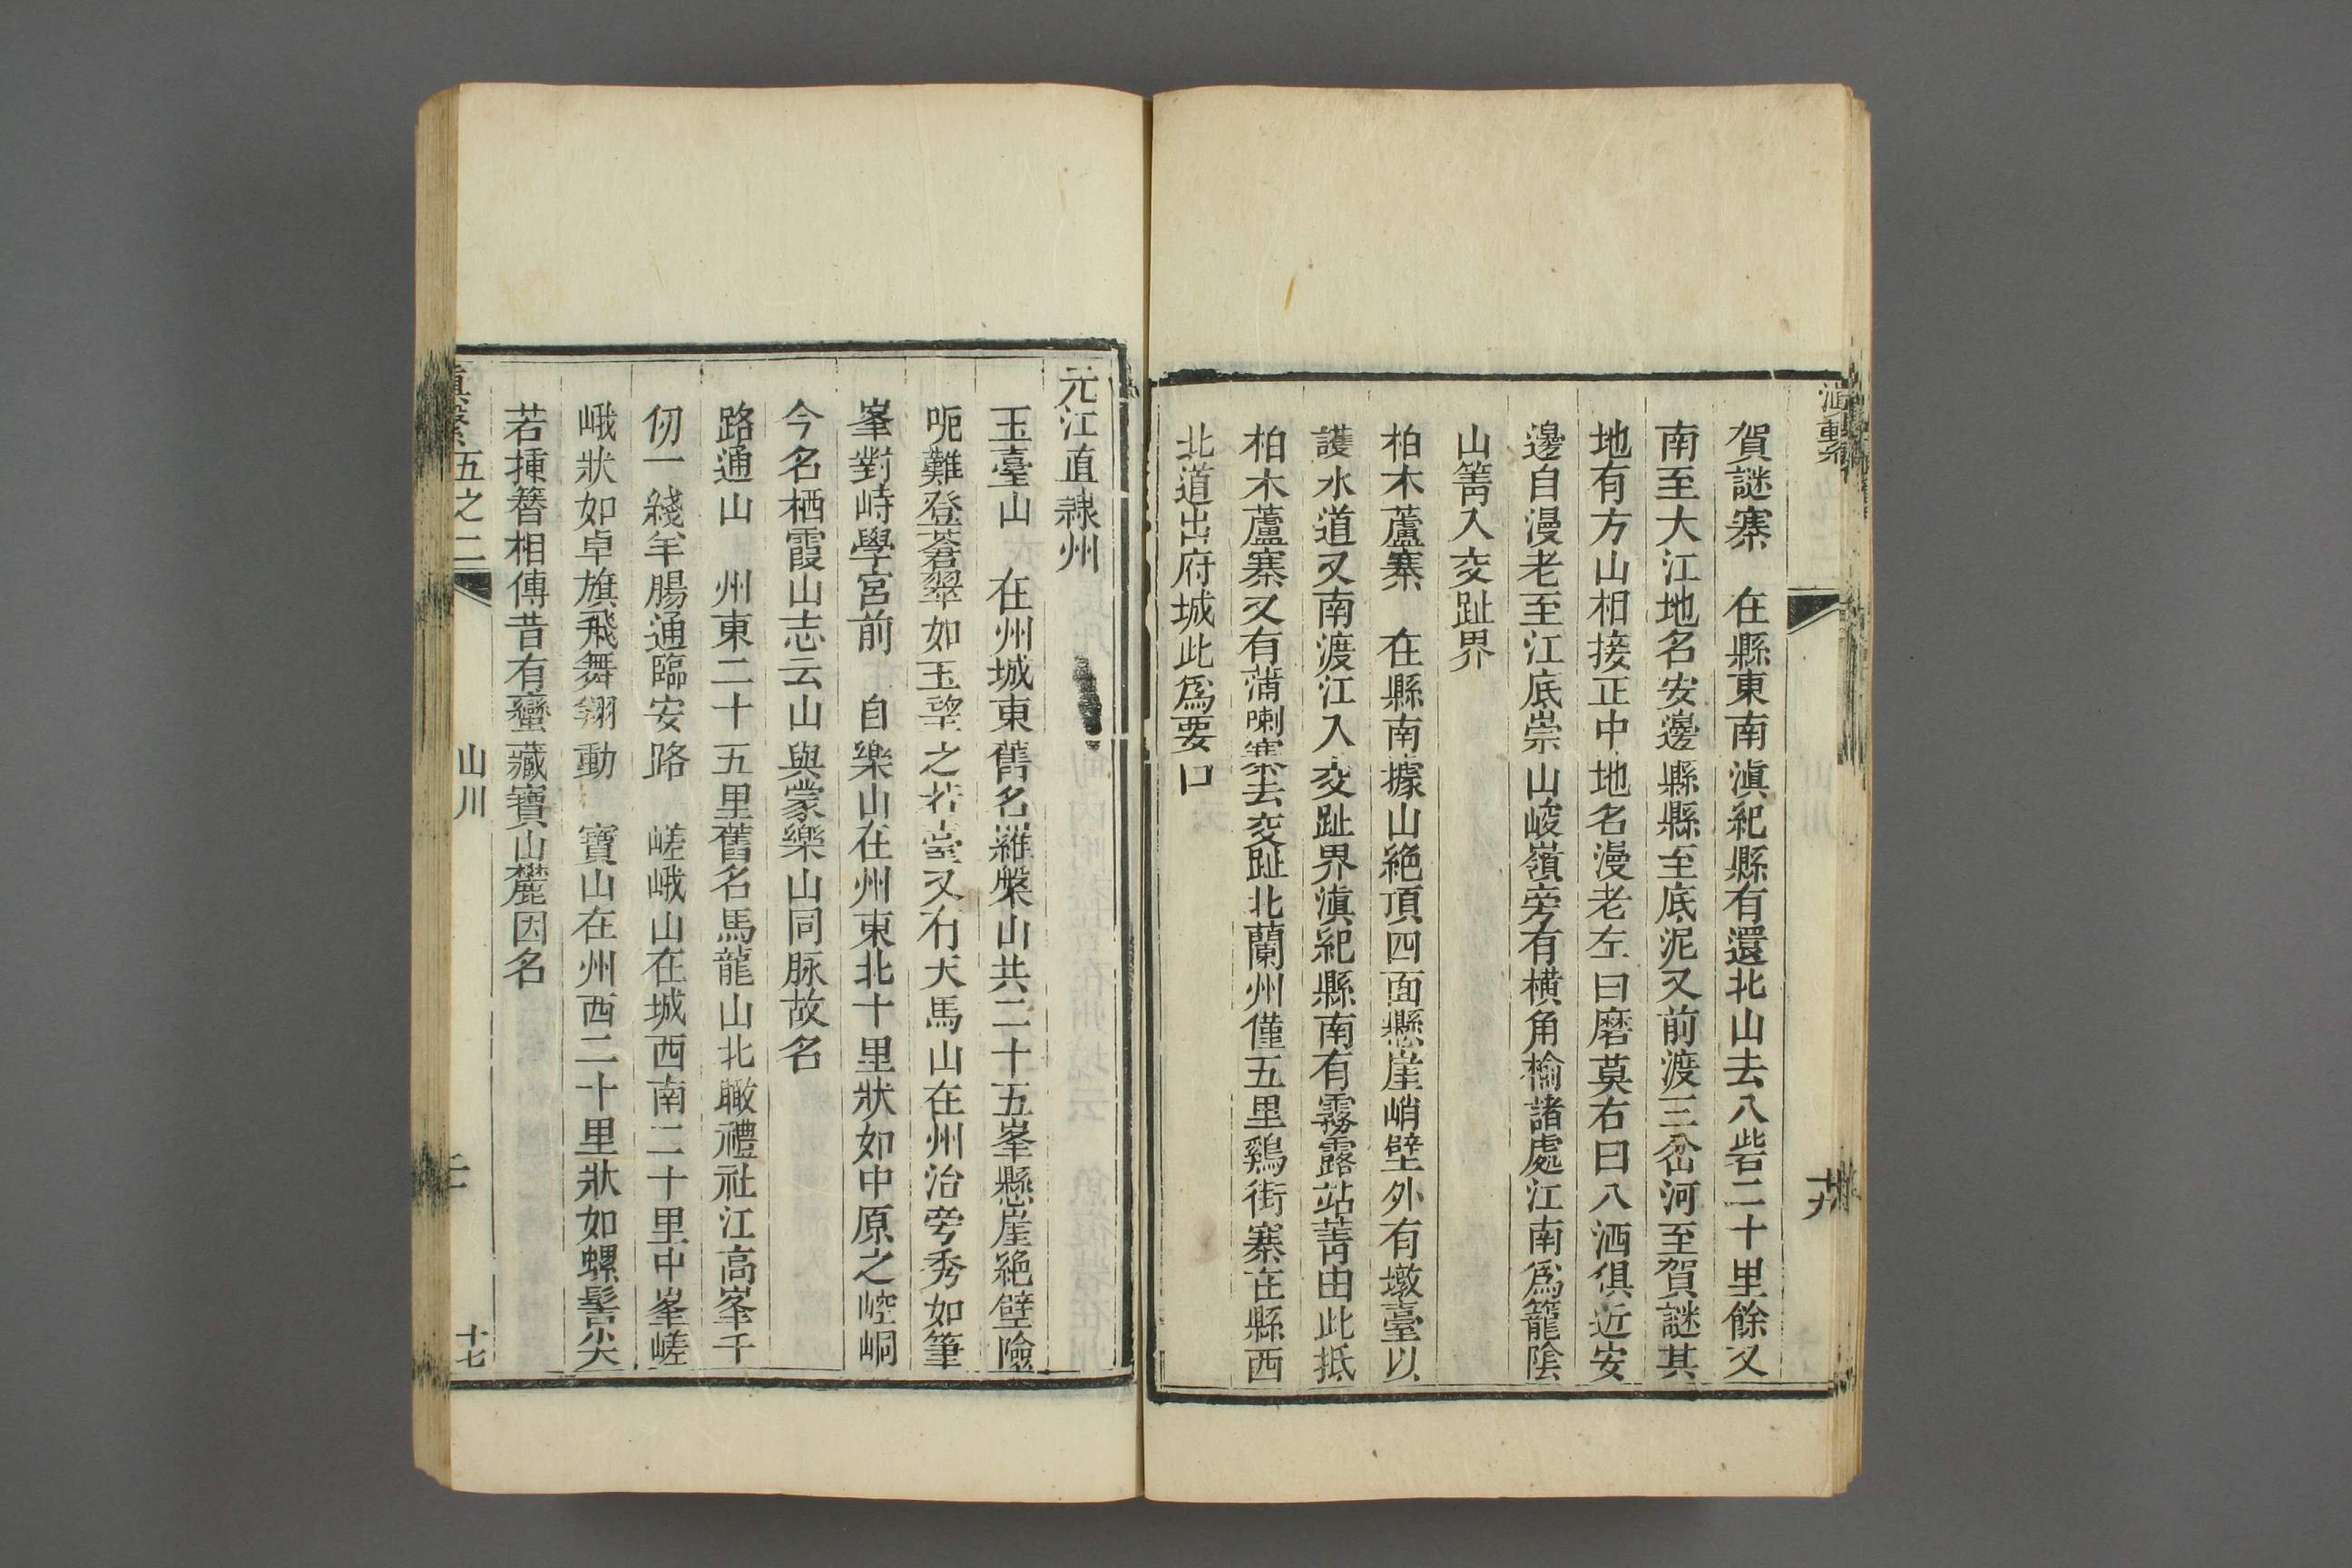 滇繫
賀謎寨　在縣東南滇紀縣有還北山去八砦二十里餘又
南至大江地名安邊縣縣至底泥又前渡三岔河至賀謎其
地有方山相接正中地名漫老左曰磨莫右曰八洒俱近安
邊自漫老至江底崇山峻嶺旁有橫角榆諸處江南爲籠陰
山箐入交趾界
柏木蘆寨　在縣南據山絶頂四面懸崖峭壁外有墩臺以
護水道又南渡江入交趾界滇紀縣南有霧露站菁由此抵
柏木蘆寨又有蒲喇寨去交趾北蘭州僅五里鷄街寨在縣西
北道出府城此爲要口
元江直隷州
玉臺山　在州城東舊名羅槃山共二十五峯懸崖絶壁險
呃難登蒼翠如玉望之若臺又有天馬山在州治旁秀如筆
峯對峙學宮前　自樂山在州東北十里狀如中原之崆峒
今名栖霞山志云山與蒙樂山同脉故名
路通山　州東二十五里舊名馬龍山北瞰禮社江高峯千
仞一綫羊腸通臨安路　嵯峨山在城西南二十里中峯嵯
峨狀如卓旗飛舞翔動　寶山在州西二十里狀如螺髻尖
若揷簪相傳昔有蠻藏寶山麓因名
滇繫五之二
山川
十七